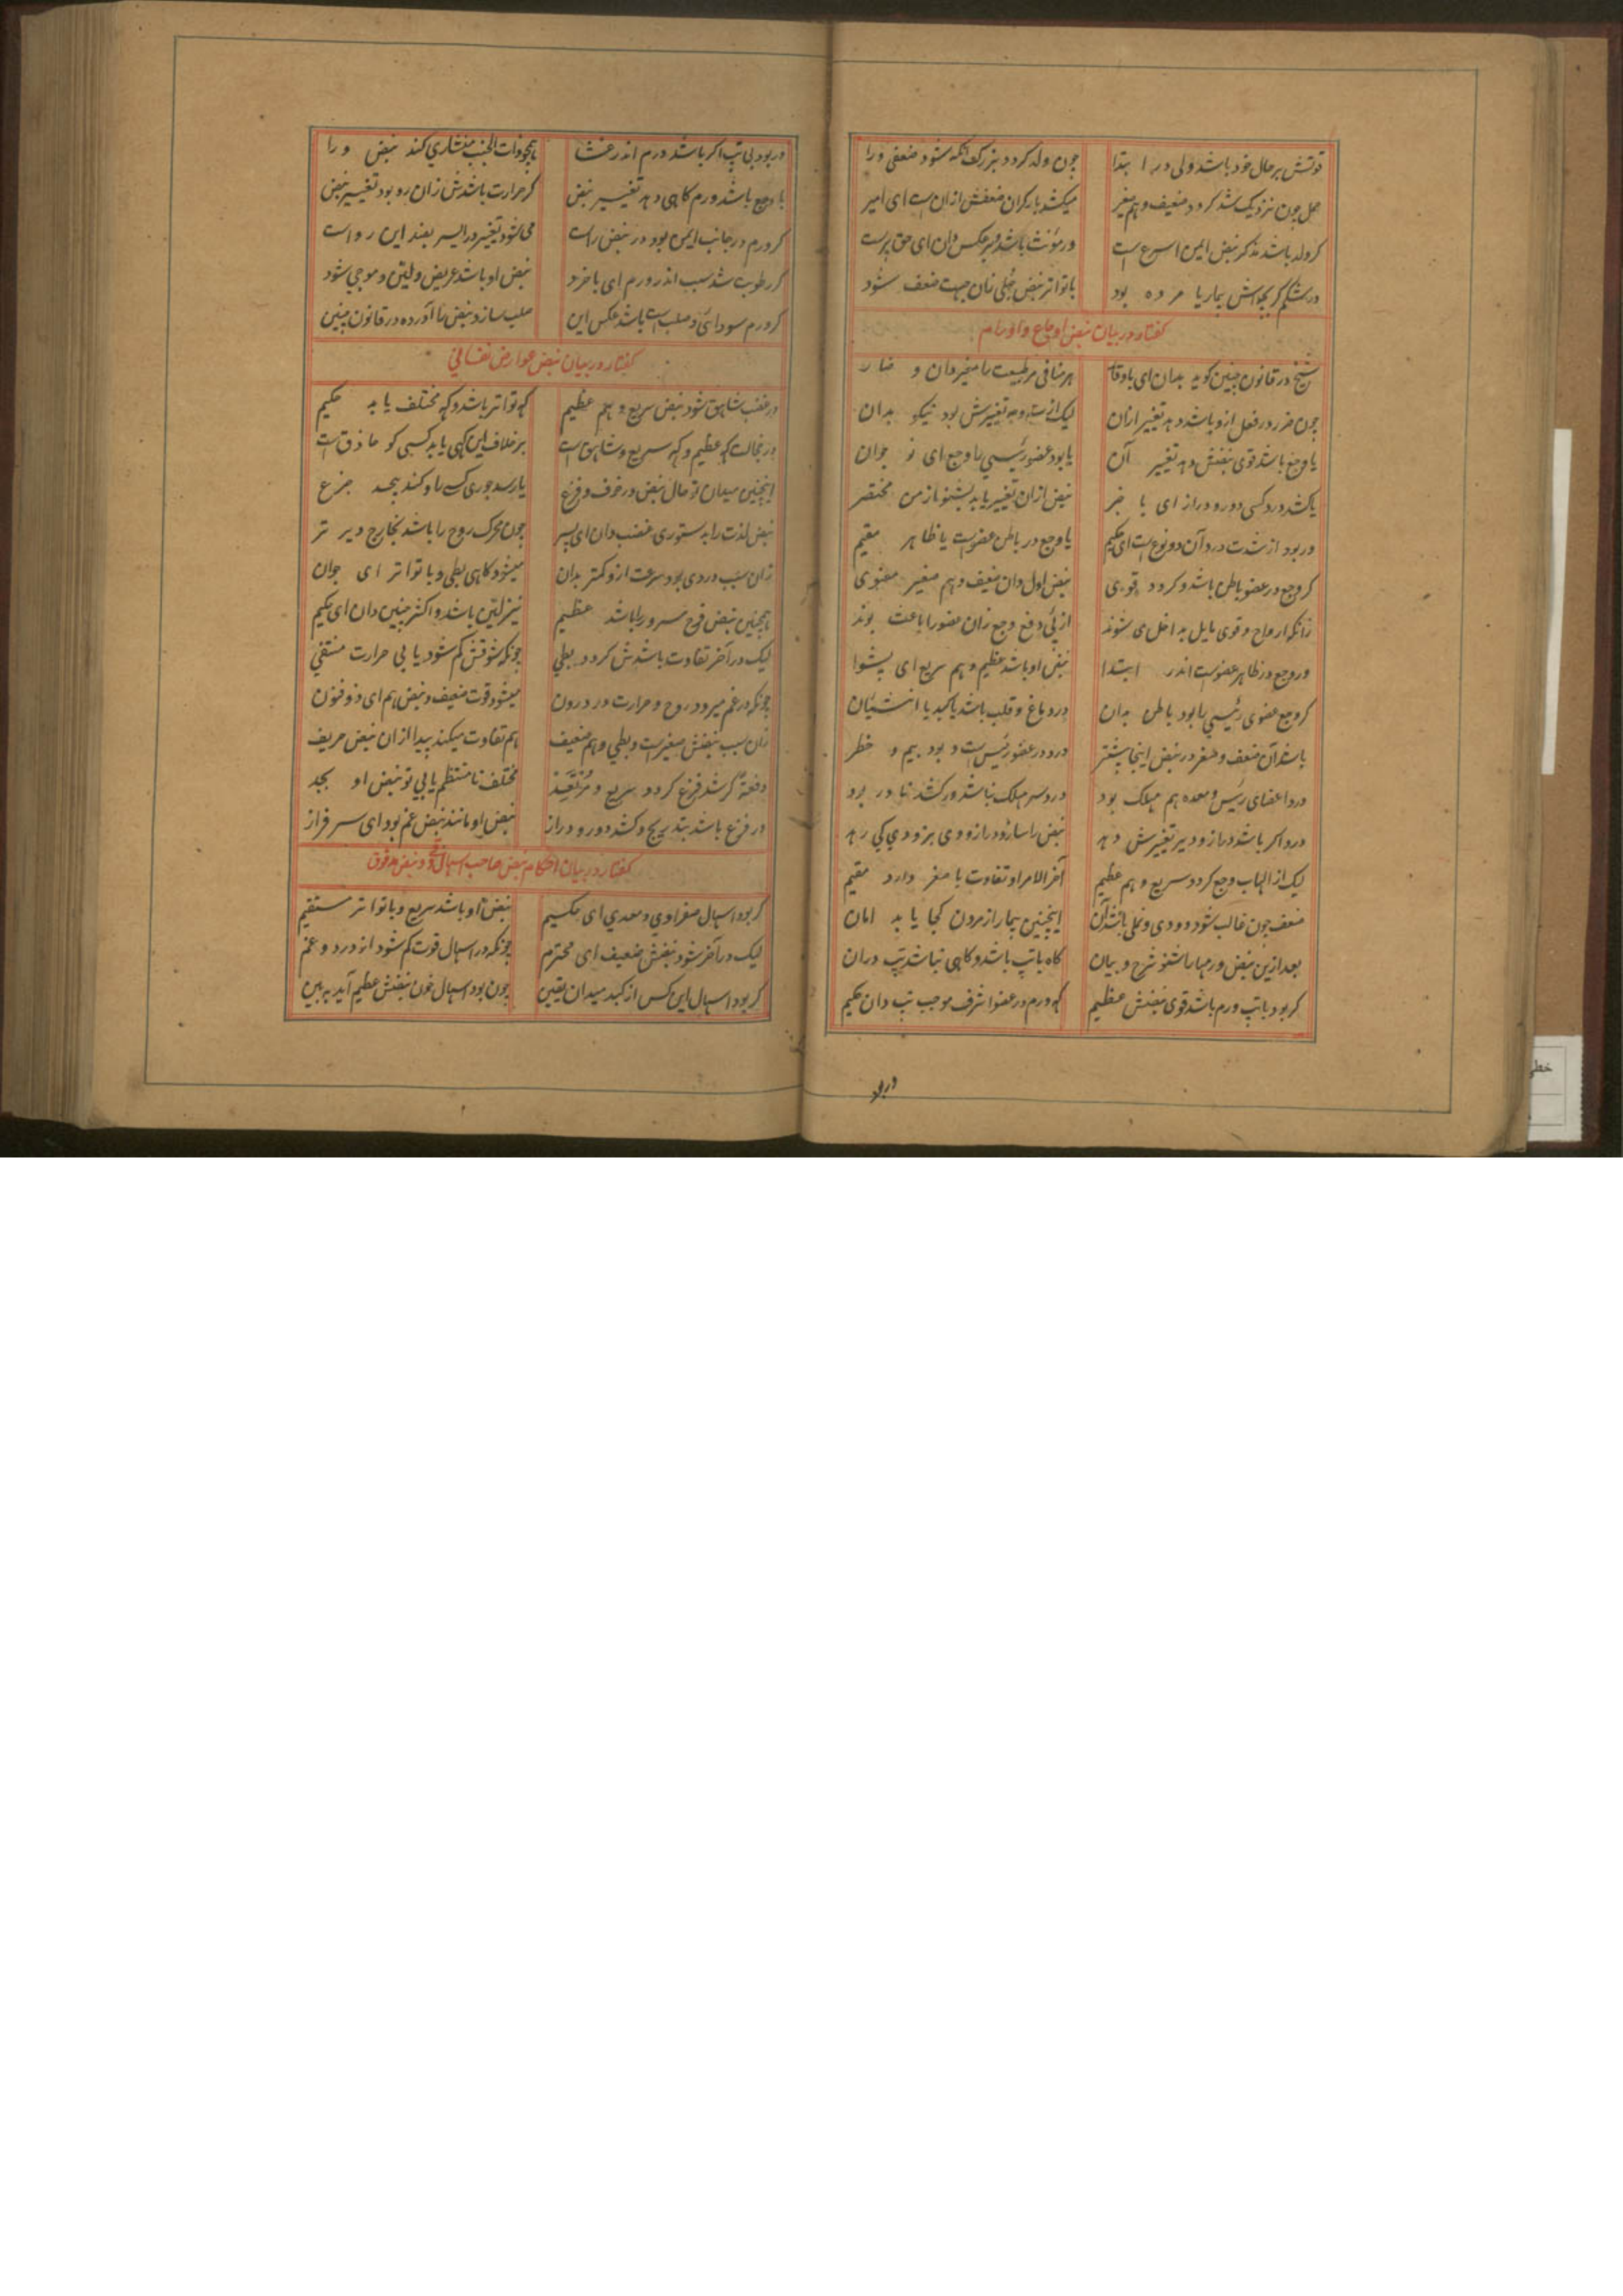 قوتش بر حال خود باشد ولی در ابتدا چون ولد کردد بزرک آنکه شود ضعفی ورا
حمل چون نزدیک شد کردد ضعیف و هم صغیر میکشد بار کران ضعفش ازان است ای امیر
کر ولد باشد مذکر نبض ایمن اسرع است ور مؤنث باشد و بر عکس دان ای حق پرست
در شکم کر بچه‌اش بیمار یا مرده بود با تواتر نبض حبلی زان جهت ضعف شود
کفتار در بیان نبض اوجاع و اورام
شیخ در قانون چنین کوید بدان ای باوقار هر منافی مر طبیعت را مغیر دان و ضار
چون ضرر در فعل ازو باشد دهد تغییر ازان لیک از سه وجه تغییرش بود نیکو بدان
یا وجع باشد قوی نبضش دهد تغییر آن یا بود عضو رئیسی با وجع ای نو جوان
یا کشد درد کسی دور و دراز ای با خبر نبض ازان تغییر یابد بشنو از من مختصر
ور بود از شدت درد آن دو نوع است ای حکیم یا وجع در باطن عضو است یا ظاهر مقیم
کر وجع در عضو باطن باشد و کردد قوی نبض اول دان ضعیف و هم صغیر معنوی
زانکه ارواح و قوی مایل بداخل می شوند از پئی دفع وجع زان عضو را باعث بوند
ور وجع در ظاهر عضو است اندر ابتدا نبض او باشد عظیم و هم سریع ای پیشوا
کر وجع عضوی رئیسی را بود باطن بدان در دماغ و قلب باشد یا کبد یا انثیان
باشد آن ضعف و صغر در نبض اینجا بیشتر درد در عضو رئیس است و بود بیم و خطر
درد اعضای رئیس و معده هم مهلک بود درد سر مهلک نباشد ور کشد نادر بود
درد اکر باشد دراز و دیر تغییرش دهد نبض را سازد دراز و دی بزودی کی رهد
لیک از الهاب وجع کردد سریع و هم عظیم آخر الامر او تفاوت با صغر دارد مقیم
ضعف چون غالب شود دودی و نملی باشد آن اینچنین بیمار از مردن کجا یابد امان
بعد ازین نبض ورمها را شنو شرح و بیان کاه با تب باشد و کاهی نباشد تب دران
کر بود با تب ورم باشد قوی نبضش عظیم که ورم در عضو اشرف موجب تب دان حکیم
در بود
ور بود بی تب اکر باشد ورم اندر غشا همچو ذات الجنب منشاری کند نبض ورا
با وجع باشد ورم کاهی دهد تغییر نبض کر حرارت باشدش زان رو بود تغییر نبض
کر ورم در جانب ایمن بود در نبض راست می شود تغییر ور ایسر بغند این رواست
کر رطوبت شد سبب اندر ورم ای با خرد نبض او باشد عریض و لین و موجی شود
کر ورم سودائی و صلب است باشد عکس این صلب سازد نبض را آورده در قانون چنین
کفتار در بیان نبض عوارض نفسانی
در غضب شاهق شود نبض سریع و هم عظیم که تواتر باشد و که مختلف یابد حکیم
در خجالت که عظیم و که سریع و شاهق است بر خلاف این کهی یابد کسی کو حاذق است
اینچنین میدان تو حال نبض در خوف و فزع یا رسد جوری کسی را و کند بیحد جزع
نبض لذت را بدستوری غضب دان ای پسر چون محرک روح را باشد بخارج دیر تر
زان سبب دردی بود سرعت ازو کمتر بدان میشود کاهی بطی و با تواتر ای جوان
همچنین نبض فرح مسرور را باشد عظیم نیز لین باشد و اکثر چنین دان ای حکیم
لیک در آخر تفاوت باشدش کردد بطی چونکه شوقش کم شود یابی حرارت منتفی
چونکه در غم میرود روح و حرارت در درون میشود قوت ضعیف و نبض هم ای ذو فنون
زان سبب نبضش صغیر است و بطی و هم ضعیف هم تفاوت میکند پیدا ازان نبض حریف
دفعةً کر شد فزع کردد سریع و مرتعد مختلف نا منتظم یابی تو نبض او بجد
در فزع باشد بتدریج و کشد دور و دراز نبض او مانند نبض غم بود ای سر فراز
کفتار در بیان احکام نبض صاحب اسهال و قی و نبض مدقوق
کر بود اسهال صفراوی و معدی ای حکیم نبض او باشد سریع و با تواتر مستقیم
لیک در آخر شود نبضش ضعیف ای محترم چونکه در اسهال قوت کم شود از درد و غم
کر بود اسهال این کس از کبد میدان یقین چون بود اسهال خون نبضش عظیم آید ببین
خطی